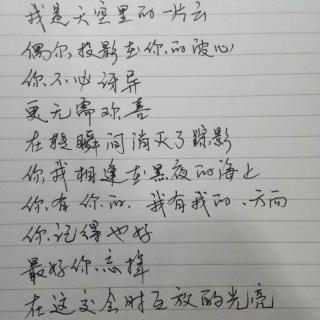 我是天空里的一片云
偶尔投影在你的波心
你不必讶异
更无需欢喜
在转瞬间消灭了踪影
你我相逢在黑夜的海上
你有你的,我有我的,方向
你记得也好
最好你忘掉
在这交会时互放的光亮